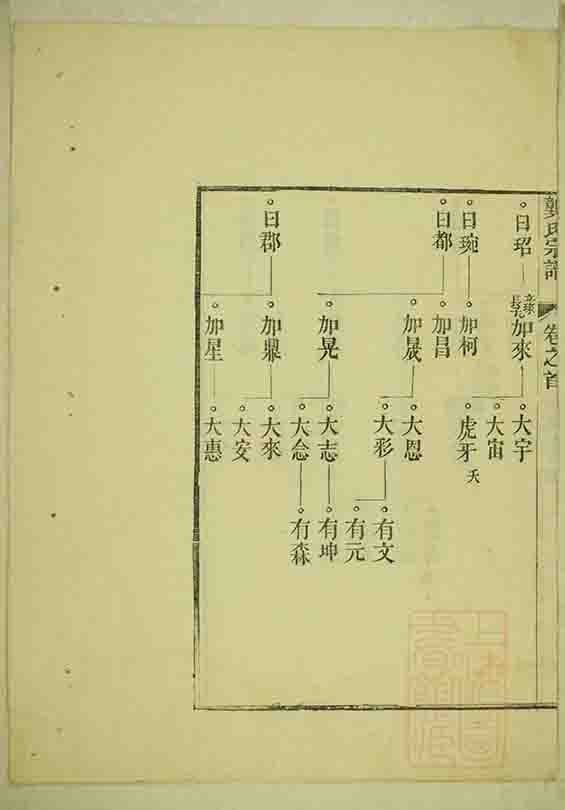 氏宗譜 卷之首
日玿
日琬
日都
日郡
立琜長子加來
加柯
加昌
加晟
加晃
加鼎
加星
大宇
大宙
虎牙 夭
大恩
大彩
大志
大念
大來
大安
大惠
有文
有元
有坤
有森